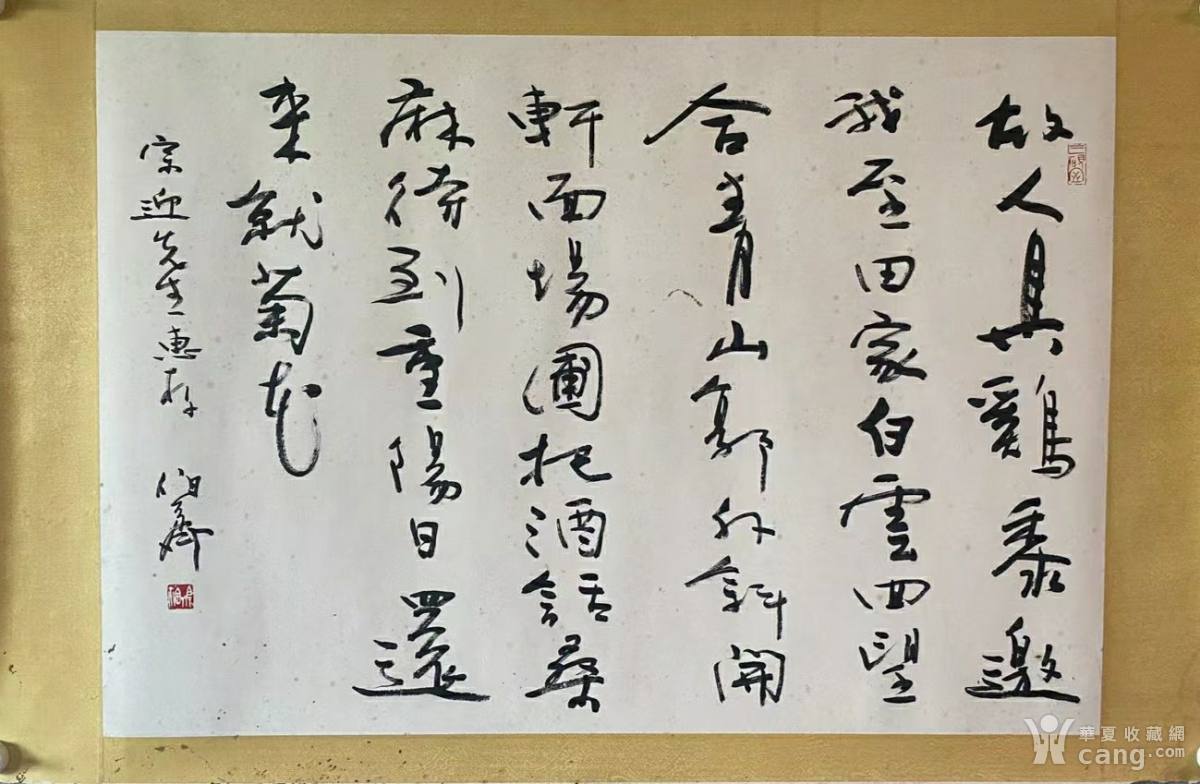 故人具雞黍邀
我至田家白雲回望
合青山郭外斜開
軒面場圃把酒話桑
麻待到重陽日還
來就菊花
宗迎先生惠存 伯
華夏收藏網
cang.com